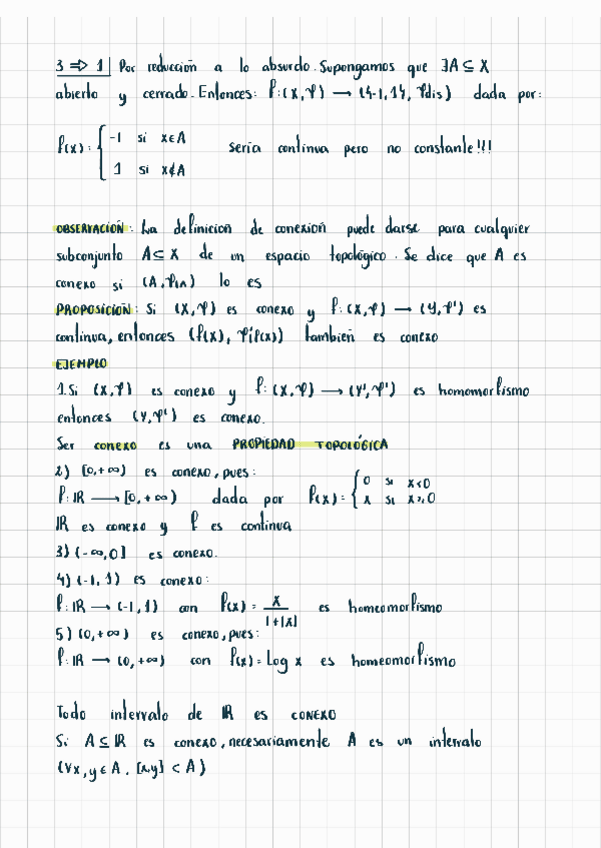 3 => 1| Por reducción a lo absurdo. Supongamos que ∃A ⊆ X
abierto y cerrado. Entonces: f:(X,τ) → ({-1,1}, τdis) dada por:
f(x): { -1 si x∈A
1 si x∉A
sería continua pero no constante!!!
OBSERVACIÓN: La definición de conexión puede darse para cualquier
subconjunto A⊆X de un espacio topológico. Se dice que A es
conexo si (A,τ|A) lo es
PROPOSICIÓN: Si (X,τ) es conexo y f:(X,τ) → (Y,τ') es
continua, entonces (f(X), τ'|f(X)) también es conexo
EJEMPLO
1. Si (X,τ) es conexo y f:(X,τ) → (Y',τ') es homomorfismo
entonces (Y,τ') es conexo.
Ser conexo es una PROPIEDAD TOPOLÓGICA
2) [0,+∞) es conexo, pues:
f: ℝ → [0,+∞) dada por f(x)= { 0 si x<0
x si x≥0
ℝ es conexo y f es continua
3) (-∞,0] es conexo.
4) (-1, 1) es conexo:
f: ℝ → (-1,1) con f(x) = x / 1+|x| es homeomorfismo
5) (0,+∞) es conexo, pues:
f: ℝ → (0,+∞) con f(x)= Log x es homeomorfismo
Todo intervalo de ℝ es conexo
Si A ⊆ ℝ es conexo, necesariamente A es un intervalo
(∀x,y ∈ A, [x,y] < A)